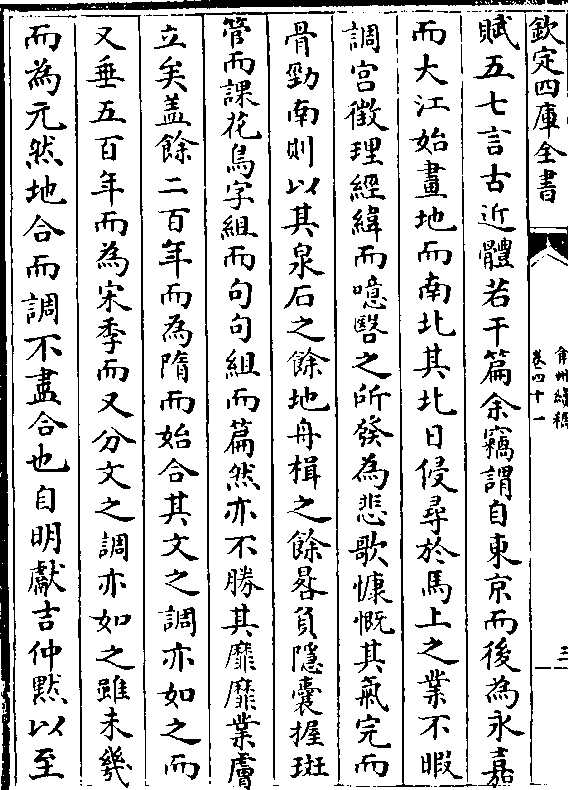 欽定四庫全書
弇州續稿
卷四十一
三
賦五七言古近體若干篇余竊謂自東京而後為永嘉
而大江始畫地而南北其北日侵尋於馬上之業不暇
調宫徵理經緯而噫毉之所發為悲歌慷慨其氣完而
骨勁南則以其泉石之餘地舟楫之餘晷負隱囊握斑
管而課花鳥字組而句句組而篇然亦不勝其靡靡業膚
立矣盖餘二百年而為隋而始合其文之調亦如之而
又垂五百年而為宋季而又分文之調亦如之雖未幾
而為元然地合而調不盡合也自明獻吉仲黙以至